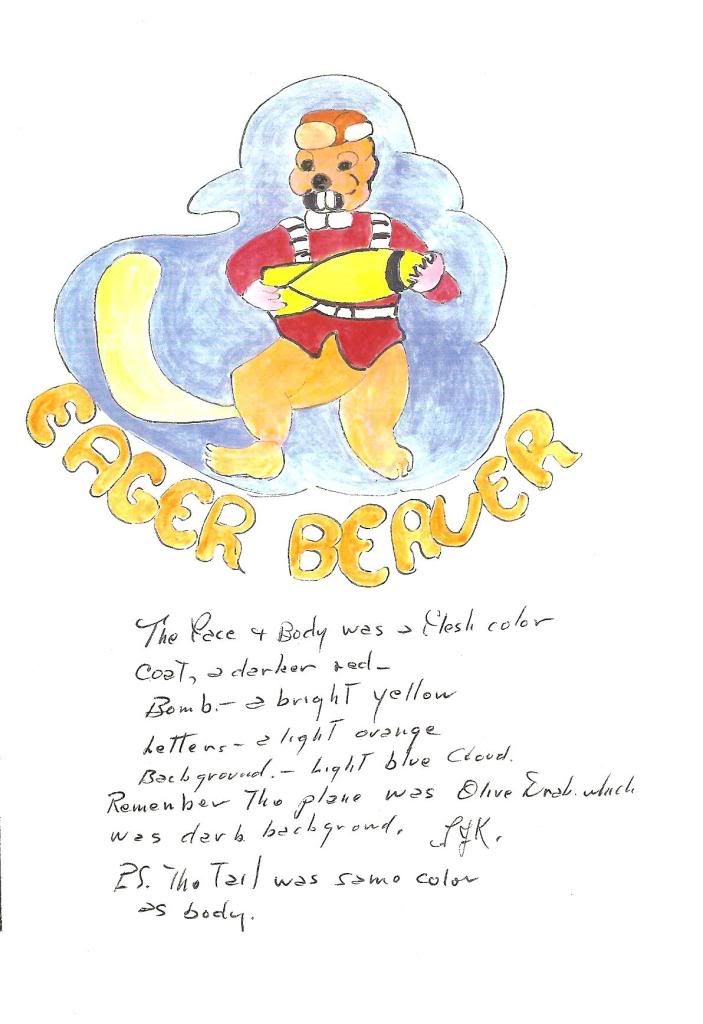 EAGER BEAVER
The Face & Body was a Flesh color
Coat, a darker red-
Bomb.- a bright yellow
Letters- a light orange
Background.- Light blue Cloud.
Remember The plane was Olive Drab. which
was dark backgrond. SJK.
PS. The Tail was same color
as body.